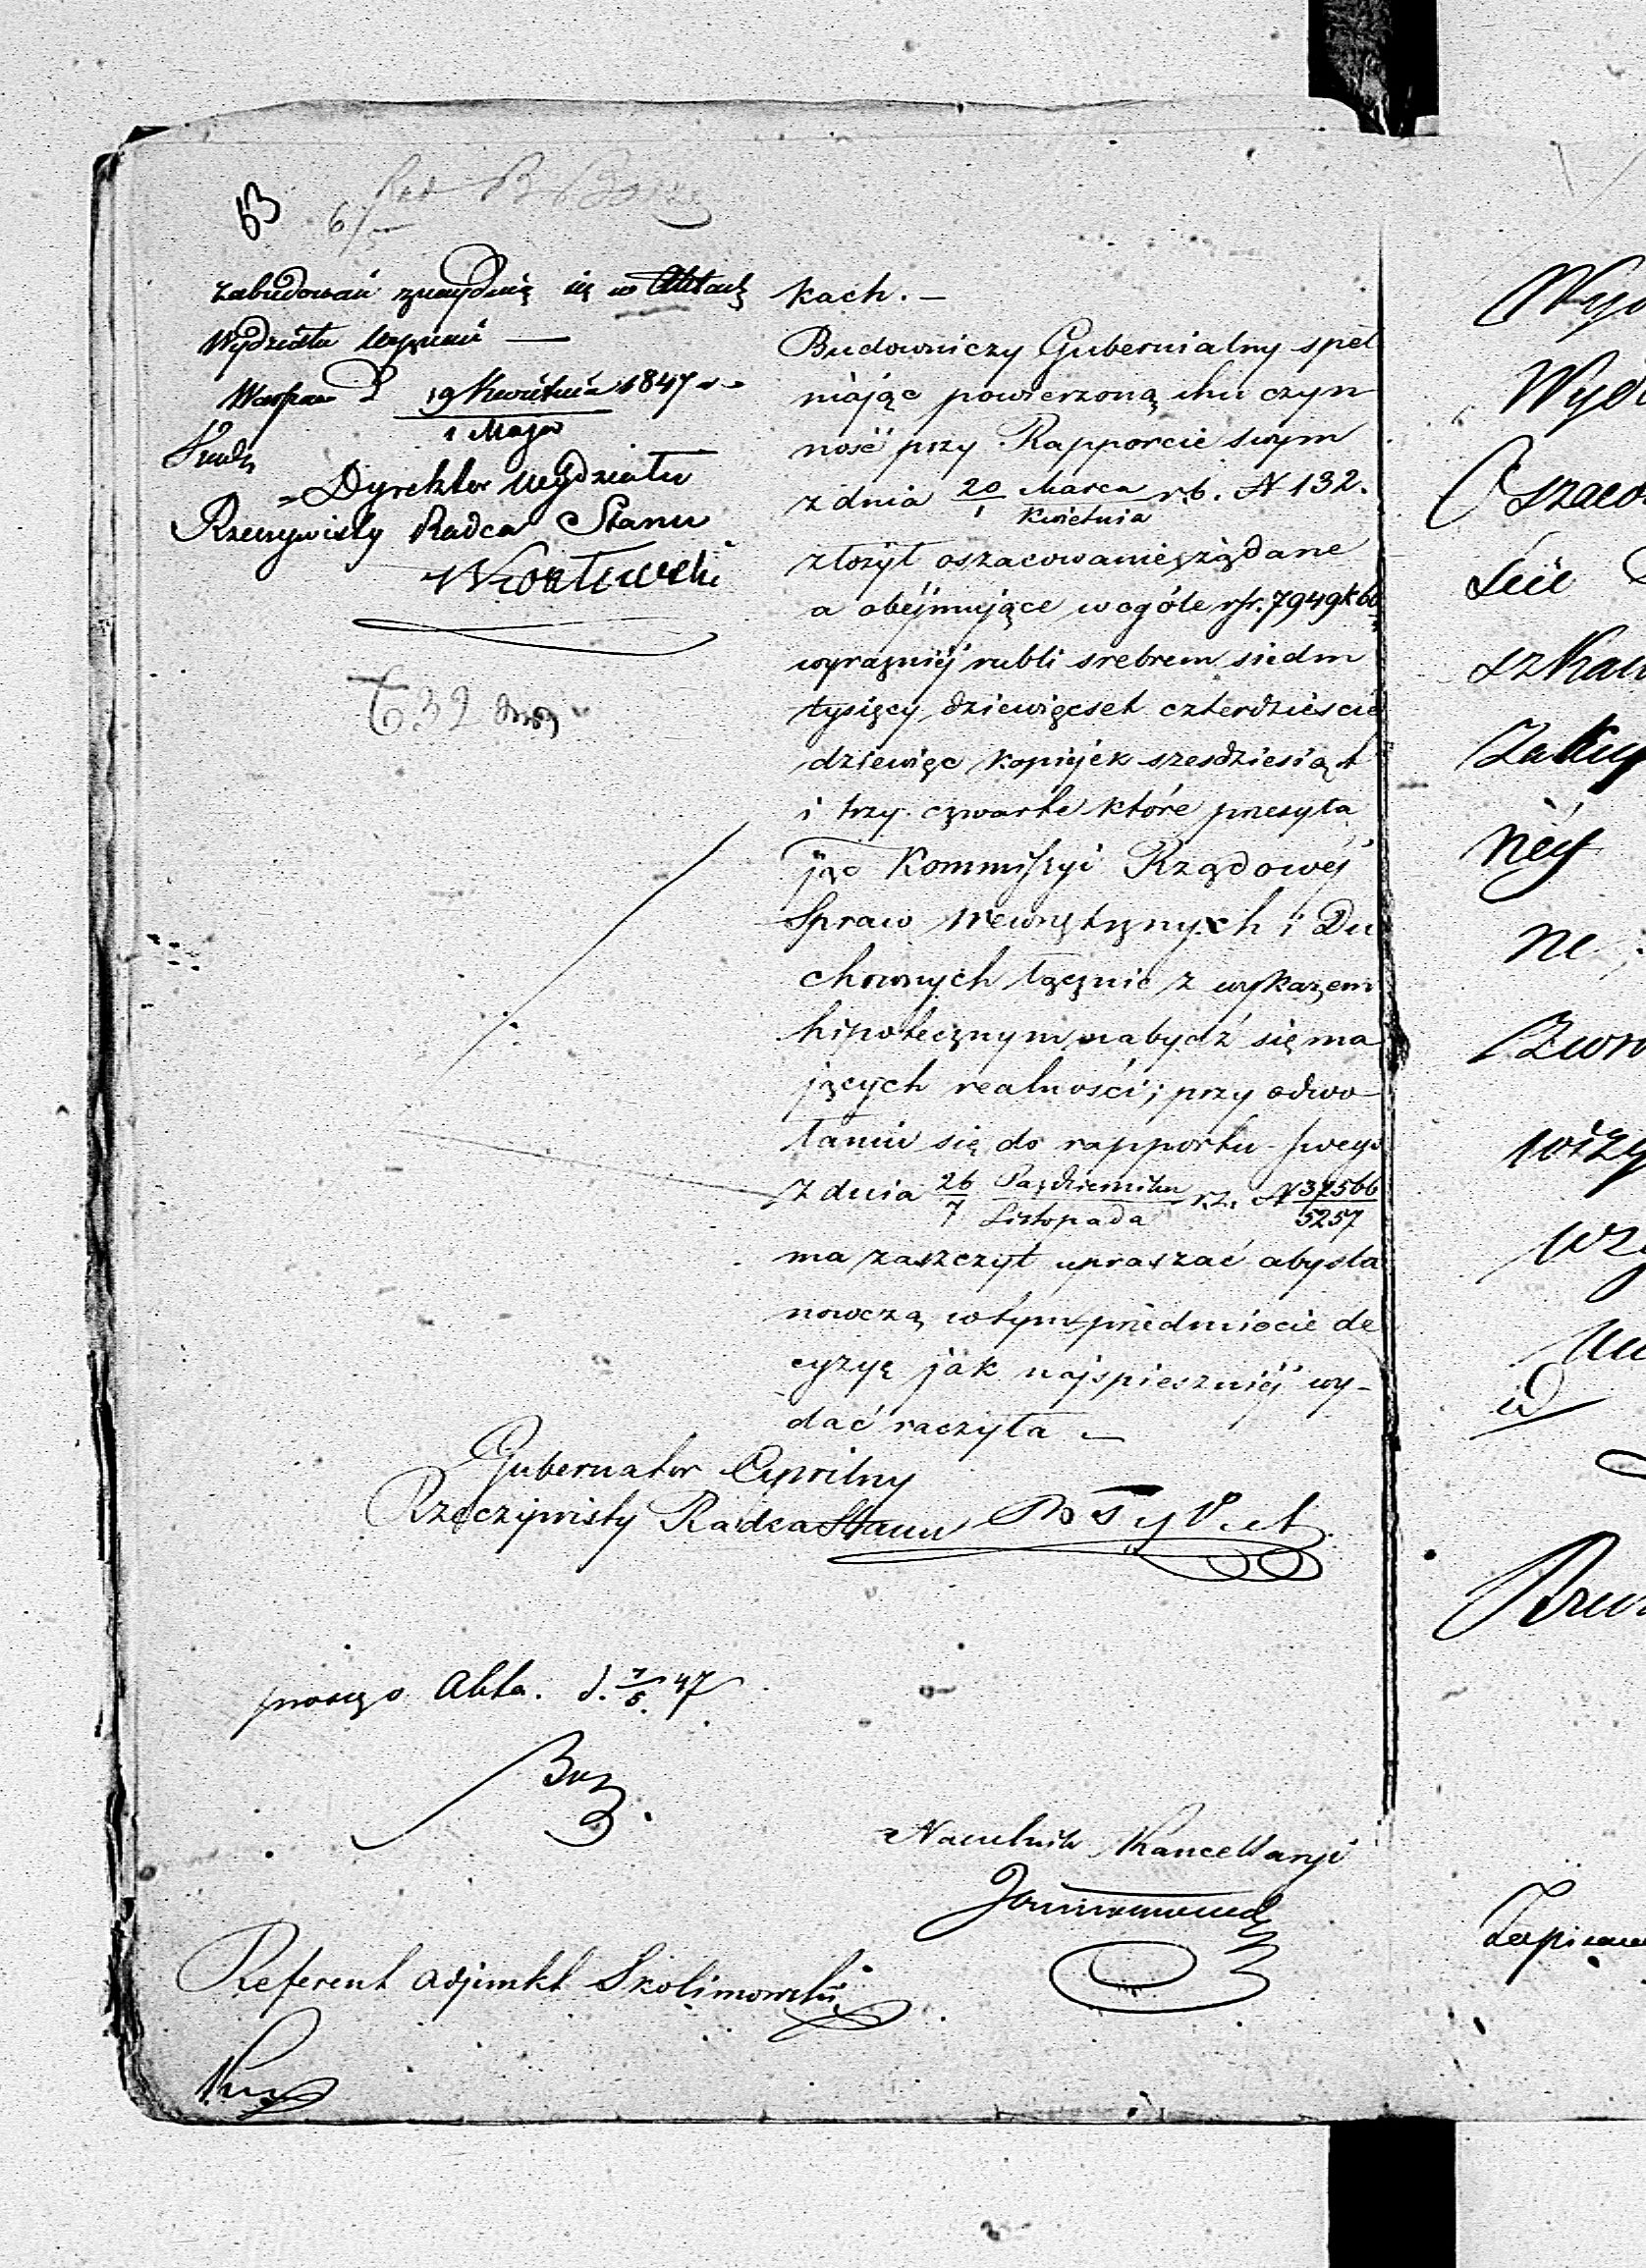 63
6/5
Zabudowań znayduią się w Aktach
Wydziału
19 Kwietnia 1847
1 Maja
Dyrektor Wydziału
Rzeczywisty Radca Stanu
632
kach. —
Budowniczy Gubernialny speł
niając powierzoną mu czyn
ność przy Rapporcie swym
z dnia 20/1 Marca/Kwietnia r. b. N 132.
złożył oszacowanie żądane
a obejmujące w ogóle rsr. 7949 k 60
wyrazniej rubli srebrem siedm
tysięcy dziewięcset czterdzieście
dziewięc kopiyek szesdziesiąt
i trzy czwarte które przesyła
jąc Kommissyi Rządowéj
Spraw Wewnętrznych i Du
chownych łącznie z wykazem
hipotecznym nabydź się ma
jących realności; przy odwo-
łaniu się do rapportu swego
z dnia 26/7 Października/Listopada r. z. N 37566/5257
ma zaszczyt upraszać aby sta
nowczą w tym przedmiocie de
cyzyę jak najspieszniéj wy-
dać raczyła —
Gubernator Cywilny
Rzeczywisty Radca Stanu
Akta. d. 7/5 47
Naczelnik Kancellaryi
Referent Adjunkt Skolimowski